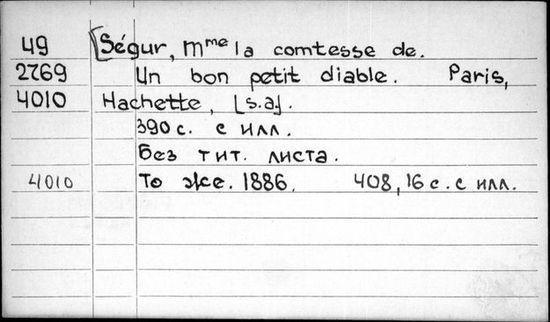 49 [Ségur, Mme la comtesse de.
2769 Un bon petit diable. Paris,
4010 Hachette, [s.a].
390 с. с илл.
Без тит. листа.
4010 То же. 1886. 408, 16 с. с илл.